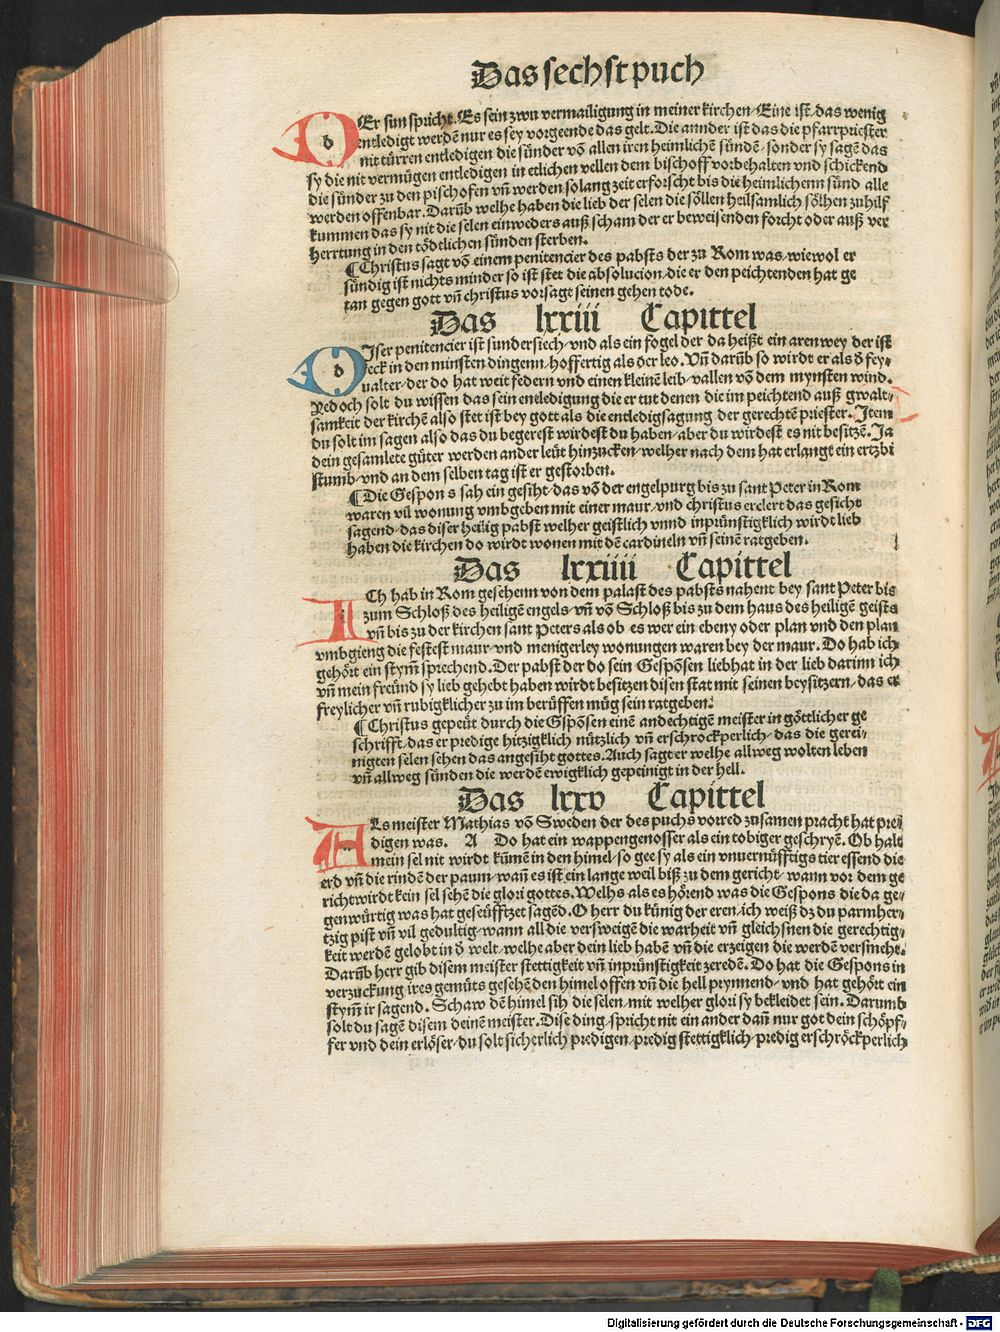 Das sechst puch
DEr sun spricht. Es sein zwu vermailigung in meiner kirchen/ Eine ist/ das wenig
entledigt werdē nur es sey vorgeende das gelt. Die annder ist das die pfarrpriester
nit türren entledigen die sünder vō allen iren heimlichē sündē/ sonder sy sagē das
sy die nit vermügen entledigen in etlichen vellen dem bischoff vorbehalten vnd schickend
die sünder zu den pischofen vn̄ werden solang zeit erforscht bis die heimlichenn sünd alle
werden offenbar. Darūb welhe haben die lieb der selen die söllen heilsamlich sölhen zuhilf
kummen das sy nit die selen einweders auß scham der er beweisenden forcht oder auß ver
herrtung in den tödtlichen sünden sterben.
¶ Christus sagt vō einem penitencier des pabsts der zu Rom was/ wiewol er
sündig ist nichts minder so ist stet die absolucion/ die er den peichtenden hat ge
tan gegen gott vn̄ christus vorsagt seinen gehen tode.
Das lxxiii Capittel
DIser penitencier ist sundersiech/ vnd als ein fogel der da heißt ein arenwey der ist
keck in den minsten dingenn/ hoffertig als der leo. Vn̄ darūb so wirdt er als d̄ fey-
ualter/ der do hat weit federn vnd einen kleinē leib/ vallen vō dem mynsten wind.
Yedoch solt du wissen das sein entledigung die er tut denen die im peichtend auß gwalt-
samkeit der kirchē also stet ist bey gott als die entledigsagung der gerechtē priester. Item
du solt im sagen also das du begerest wirdest du haben/ aber du wirdest es nit besitzē. Ja
dein gesamlete güter werden ander leüt hinzucken/ welher nach dem hat erlangt ein ertzbi
stumb/ vnd an dem selben tag ist er gestorben.
¶ Die Gespons sah ein gesiht/ das vō der engelpurg bis zu sant Peter in Rom
waren vil wonung vmbgeben mit einer maur/ vnd christus erclert das gesicht
sagend/ das diser heilig pabst welher geistlich vnnd inprünstigklich wirdt lieb
haben die kirchen do wirdt wonen mit dē cardineln vn̄ seinē ratgeben.
Das lxxiiii Capittel
ICh hab in Rom gesehenn von dem palast des pabsts nahent bey sant Peter bis
zum Schloß des heiligē engels/ vn̄ vō Schloß bis zu dem haus des heiligē geists
vn̄ bis zu der kirchen sant Peters als ob es wer ein ebeny oder plan vnd den plan
vmbgieng die festest maur/ vnd menigerley wonungen waren bey der maur. Do hab ich
gehört ein stym̄ sprechend. Der pabst der do sein Gespōsen liebhat in der lieb darinn ich
vn̄ mein freünd sy lieb gehebt haben wirdt besitzen disen stat mit seinen beysitzern/ das er
freylicher vn̄ rubigklicher zu im berüffen müg sein ratgeben.
¶ Christus gepeüt durch die Gspōsen einē andechtigē meister in göttlicher ge
schrifft/ das er predige hitzigklich nützlich vn̄ erschrockperlich/ das die gerei-
nigten selen sehen das angesiht gottes. Auch sagt er welhe allweg wolten leben
vn̄ allweg sünden die werdē ewigklich gepeinigt in der hell.
Das lxxv Capittel
ALs meister Mathias vō Sweden der des puchs vorred zusamen pracht hat pre-
digen was. A Do hat ein wappengenosser als ein tobiger geschryē. Ob halt
mein sel nit wirdt kūmē in den himel/ so gee sy als ein vnuernüfftigs tier essend die
erd vn̄ die rindē der paum/ wan̄ es ist ein lange weil biß zu dem gericht/ wann vor dem ge
richt wirdt kein sel sehē die glori gottes. Welhs als es hörend was die Gespons die da ge-
genwürtig was hat geseüfftzet sagēd. O herr du künig der eren/ ich weiß dz du parmher-
tzig pist vn̄ vil gedultig/ wann all die versweigē die warheit vn̄ gleichsnen die gerechtig-
keit werdē gelobt in d̄ welt/ welhe aber dein lieb habē vn̄ die erzeigen die werdē versmeht.
Darūb herr gib disem meister stettigkeit vn̄ inprünstigkeit zeredē. Do hat die Gespons in
verzuckung ires gemüts gesehē den himel offen vn̄ die hell prynnend/ vnd hat gehört ein
stym̄ ir sagend. Schaw dē himel sih die selen/ mit welher glori sy bekleidet sein. Darumb
solt du sagē disem deinē meister. Dise ding spricht nit ein ander dan̄ nur got dein schöpf-
fer vnd dein erlöser/ du solt sicherlich predigen/ predig stettigklich/ predig erschröckperlich
Digitalisierung gefördert durch die Deutsche Forschungsgemeinschaft - DFG